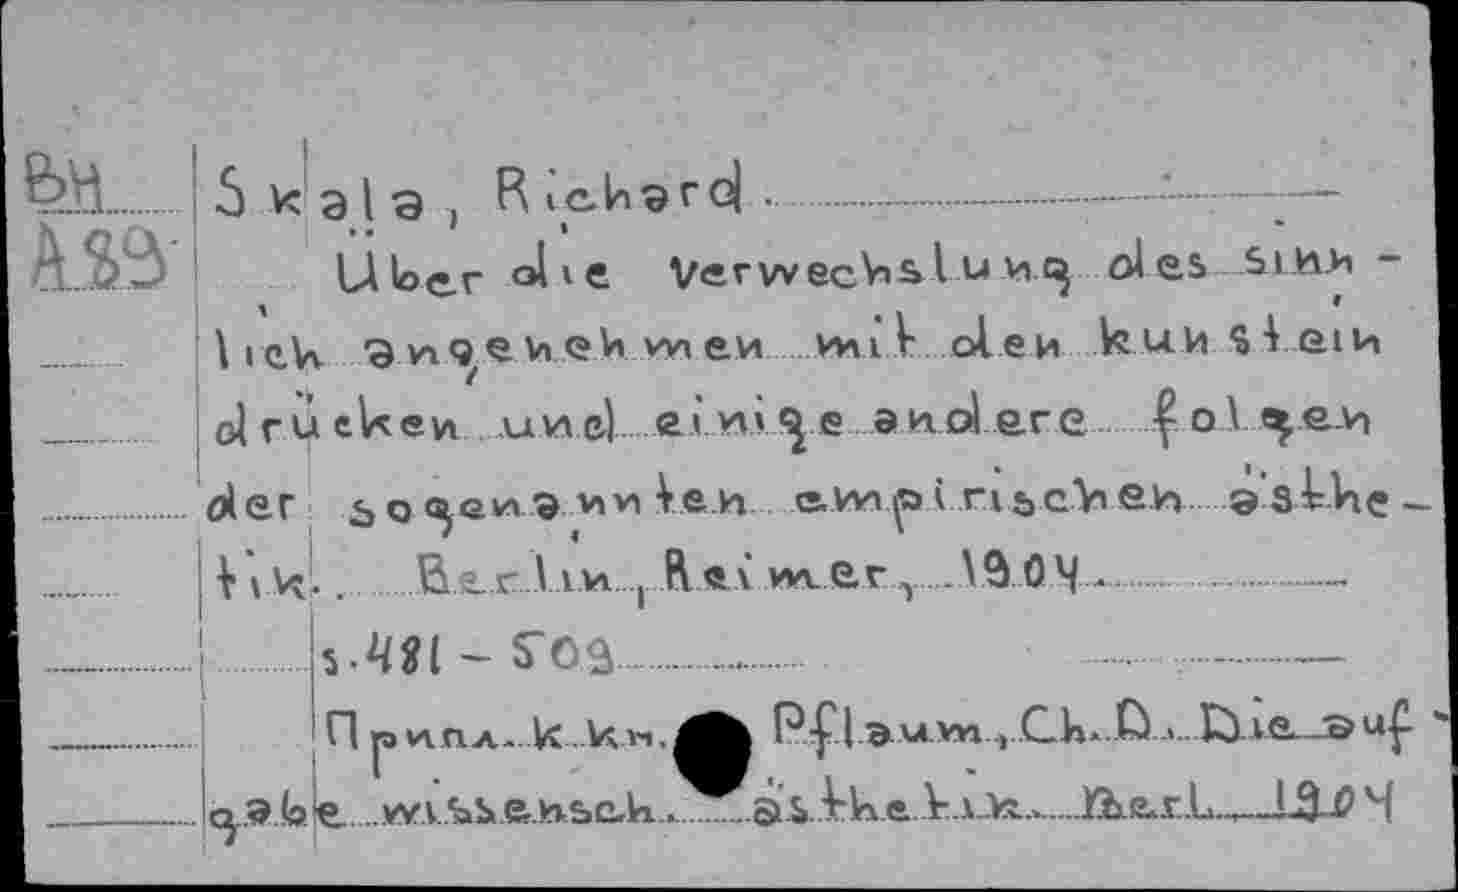 ВН Skala, Richard.
А89 Über die Verwechslung des sinn-
lich angenehmen mit den kunstein
drücken und einige andere folgen
der sogenannten empirischen ästhe-
tik. Berlin, Reimer, 1904.
s.481-503
Припл. к кн. Pflaum, Ch. D. Die auf
gabe wissensch. ästhetik. Berl., 1904